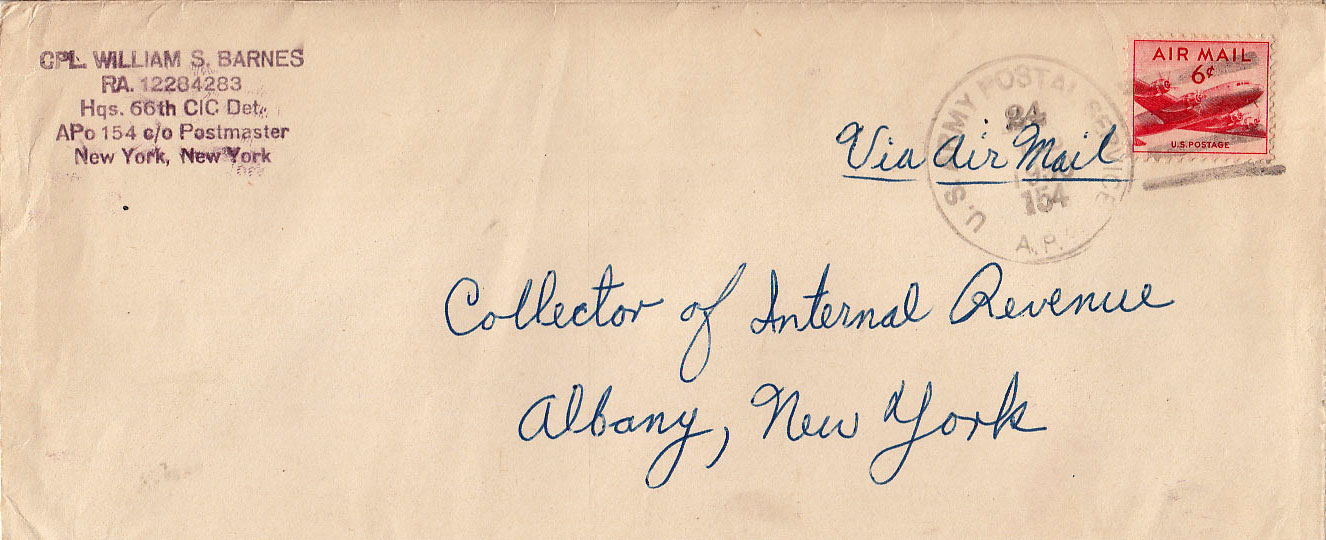 CPL. WILLIAM S. BARNES
RA. 12284283
Hqs. 66th CIC Det.
APo 154 c/o Postmaster
New York, New York
AIR MAIL
6¢
U.S. POSTAGE
U.S. ARMY POSTAL SERVICE
24
154
A.P.
Via Air Mail
Collector of Internal Revenue
Albany, New York